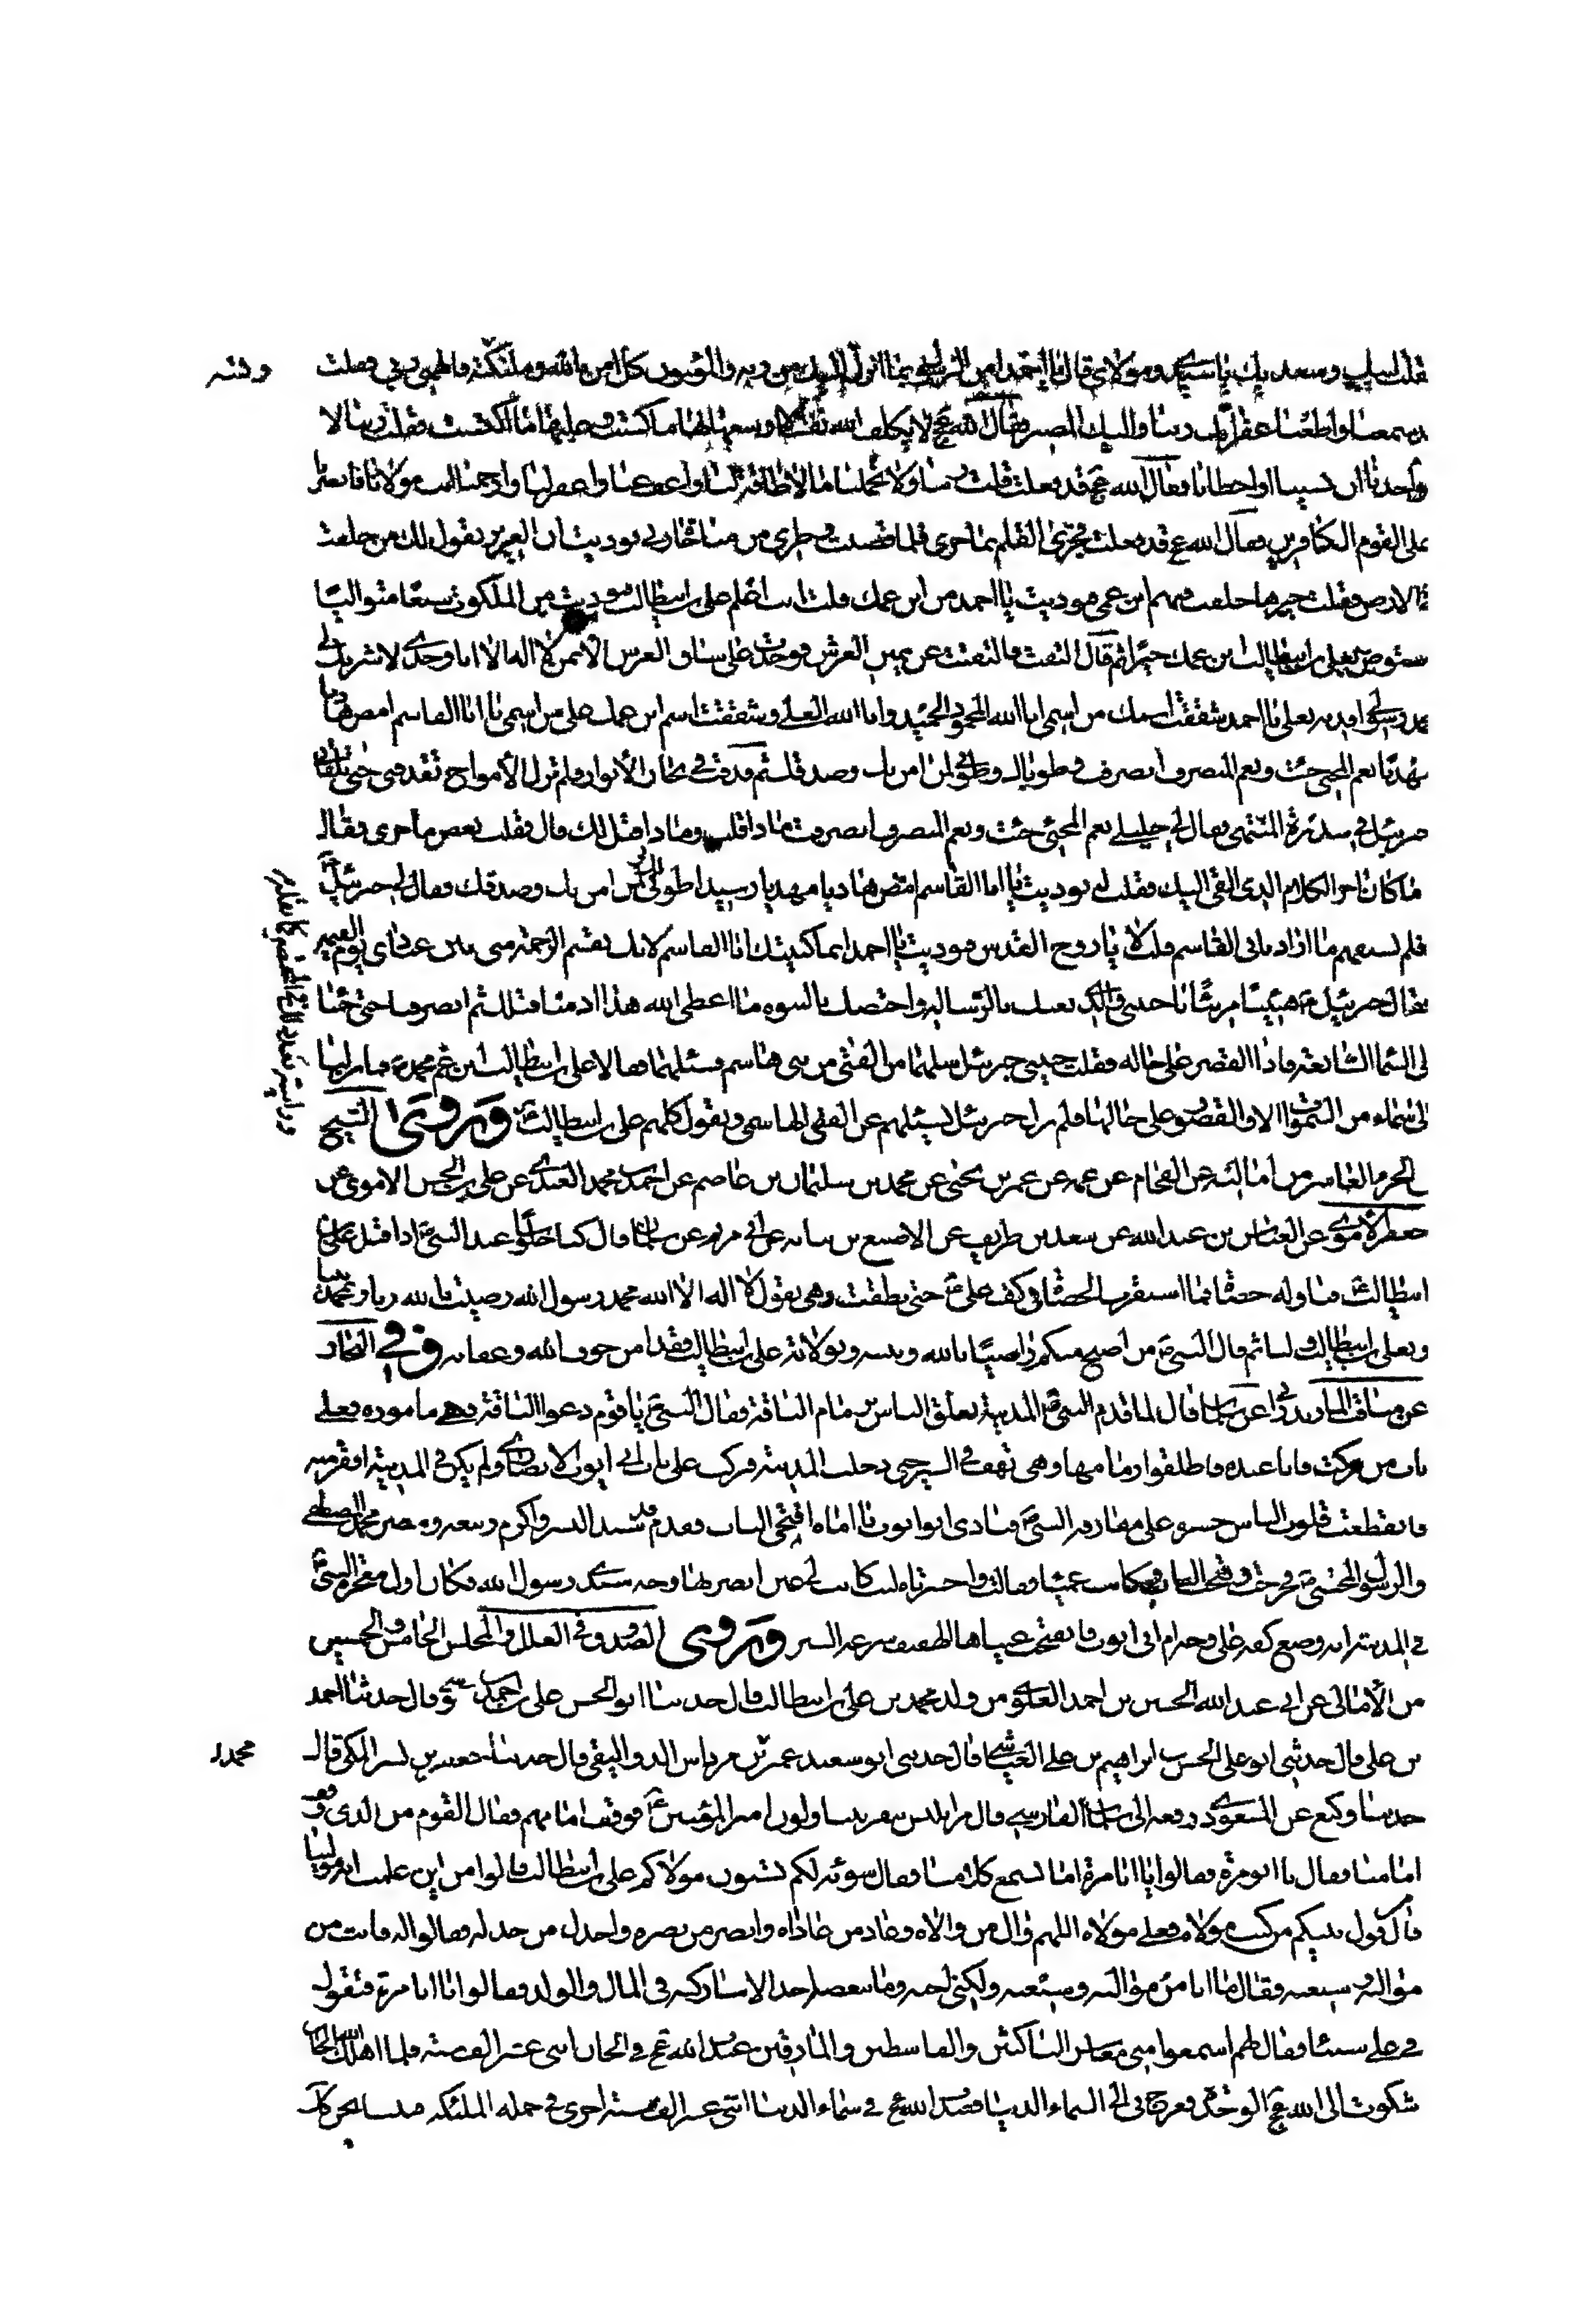 قلت لبيك وسعديك يا سيدي ومولاي قال يا احمد امن الرسول بما انزل اليه من ربه والمؤمنون كل امن بالله وملئكته فالهمني ربي فقلت
سمعنا واطعنا غفرانك ربنا واليك المصير فقال الله عج لا يكلف الله نفسا الا وسعها لها ما كسبت وعليها ما اكتسبت فقلت ربنا لا
تواخذنا ان نسينا او اخطانا فقال الله عج قد فعلت قلت ربنا ولا تحملنا ما لا طاقة لنا به واعف عنا واغفر لنا وارحمنا انت مولانا فانصرنا
على القوم الكافرين فقال الله عج قد فعلت فجرى القلم بما جرى فلما قضيت وطري من مناجاة ربي نوديت ان العزيز يقول لك من خلفت
في الارض فقلت خيرها خلفت فيهم ابن عمي فنوديت يا احمد من ابن عمك قلت انت اعلم علي بن ابيطالب فنوديت من الملكوت سبعا متواليا
استوص بعلي بن ابيطالب ابن عمك خيرا ثم قال التفت فالتفت عن يمين العرش فوجدت على ساق العرش الايمن لا اله الا انا وحدي لا شريك لي
محمد رسولي ايدته بعلي يا احمد شققت اسمك من اسمي انا الله المحمود الحميد وانا الله العلي وشققت اسم ابن عمك علي من اسمي يا ابا القاسم امض هاديا
مهديا نعم المجيء جئت ونعم المنصرف انصرفت وطوباك وطوبى لمن امن بك وصدقك ثم قذفت في بحار الانوار فلم تزل الامواج تقذفني حتى تلقاني
جبرئيل في سدرة المنتهى فقال لي خليلي نعم المجيء جئت ونعم المنصرف انصرفت ماذا قلت وماذا قيل لك قال فقلت بعض ما جرى فقال
ما كان اخر الكلام الذي القي اليك فقلت له نوديت يا ابا القاسم امض هاديا مهديا رشيدا طوباك وطوبى لمن امن بك وصدقك فقال لي جبرئيل
فلم تستفهم ما اراد بابي القاسم قلت لا يا روح القدس فنوديت يا احمد انما كنيتك ابا القاسم لانك تقسم الرحمة مني بين عبادي يوم القيمة
فقال جبرئيل هنيئا مريئا يا حبيبي والذي بعثك بالرسالة واختصك بالنبوة ما اعطى الله هذا ادميا قبلك ثم انصرفنا حتى جئنا
الى السماء السابعة فاذا القصر على حاله فقلت حبيبي جبرئيل سلهما من الفتى من بني هاشم فسئلهما فقالا علي بن ابيطالب ابن عم محمد فما نزلنا
الى سماء من السموات الا والقصور على حالها فلم يزل جبرئيل يسئلهم عن الفتى الهاشمي ويقول كلهم علي بن ابيطالب وروى الشيخ
في الجزء العاشر من اماليه عن الفحام عن عمه عن عمر بن يحيى عن محمد بن سليمان بن عاصم عن احمد بن محمد العبدي عن علي بن الحسن الاموي عن
جعفر الاموي عن العباس بن عبد الله عن سعد بن طريف عن الاصبغ بن نباته عن ابي مريم عن سلمان قال كنا جلوسا عند النبي اذ اقبل علي بن
ابيطالب فناوله حصاة فما استقرت الحصاة في كف علي حتى نطقت وهي تقول لا اله الا الله محمد رسول الله رضيت بالله ربا وبمحمد نبيا
وبعلي بن ابيطالب وليا ثم قال النبي من اصبح منكم راضيا بالله وبنبيه وبولاية علي بن ابيطالب فقد امن خوف الله وعقابه وفي البحار
عن مناقب المازندراني عن سلمان قال لما قدم النبي المدينة تعلق الناس بزمام الناقة فقال النبي يا قوم دعوا الناقة فهي مامورة فعلى
باب من بركت فانا عنده فاطلقوا زمامها وهي تهف في السير حتى دخلت المدينة فبركت على باب ابي ايوب الانصاري ولم يكن في المدينة افقر منه
فانقطعت قلوب الناس حسرة على مفارقة النبي فنادى ابو ايوب يا اماه افتحي الباب فقد قدم سيد البشر واكرم ربيعة ومضر محمد المصطفى
والرسول المجتبى فخرجت وفتحت الباب وكانت عمياء فقالت واحسرتاه ليت كانت لي عين ابصر بها وجه سيدي رسول الله فكان اول معجزة النبي
في المدينة انه وضع كفه على وجه ام ابي ايوب فانفتحت عيناها وروى الصدوق في العلل والمجلس الخامس والخمسين
من الامالي عن ابي عبد الله الحسين بن احمد العلوي من ولد محمد بن علي بن ابيطالب قال حدثنا ابو الحسن علي بن احمد بن موسى قال حدثنا احمد
بن علي قال حدثني ابو علي الحسن بن ابراهيم بن علي العباسي قال حدثني ابو سعيد عمير بن مرداس الدوانيقي قال حدثنا جعفر بن بشير المكي قال
حدثنا وكيع عن المسعودي رفعه الى سلمان الفارسي قال مر ابليس بنفر يتناولون امير المؤمنين فوقف امامهم فقال القوم من الذي وقف
امامنا فقال انا ابو مرة فقالوا يا ابا مرة اما تسمع كلامنا فقال سوءة لكم تسبون مولاكم علي بن ابيطالب قالوا من اين علمت انه مولينا
قال من قول نبيكم من كنت مولاه فعلي مولاه اللهم وال من والاه وعاد من عاداه وانصر من نصره واخذل من خذله فقالوا له فانت من
مواليه وشيعته فقال ما انا من مواليه وشيعته ولكني احبه وما يبغضه احد الا شاركته في المال والولد فقالوا يا ابا مرة فتقول
في علي شيئا فقال لهم اسمعوا مني معاشر الناكثين والقاسطين والمارقين عبدت الله عج في الجان اثني عشر الف سنة فلما اهلك الله الجان
شكوت الى الله عج الوحدة فعرج بي الى السماء الدنيا فعبدت الله عج في سماء الدنيا اثني عشر الف سنة اخرى في جملة الملئكة فبينا نحن كك
محمد